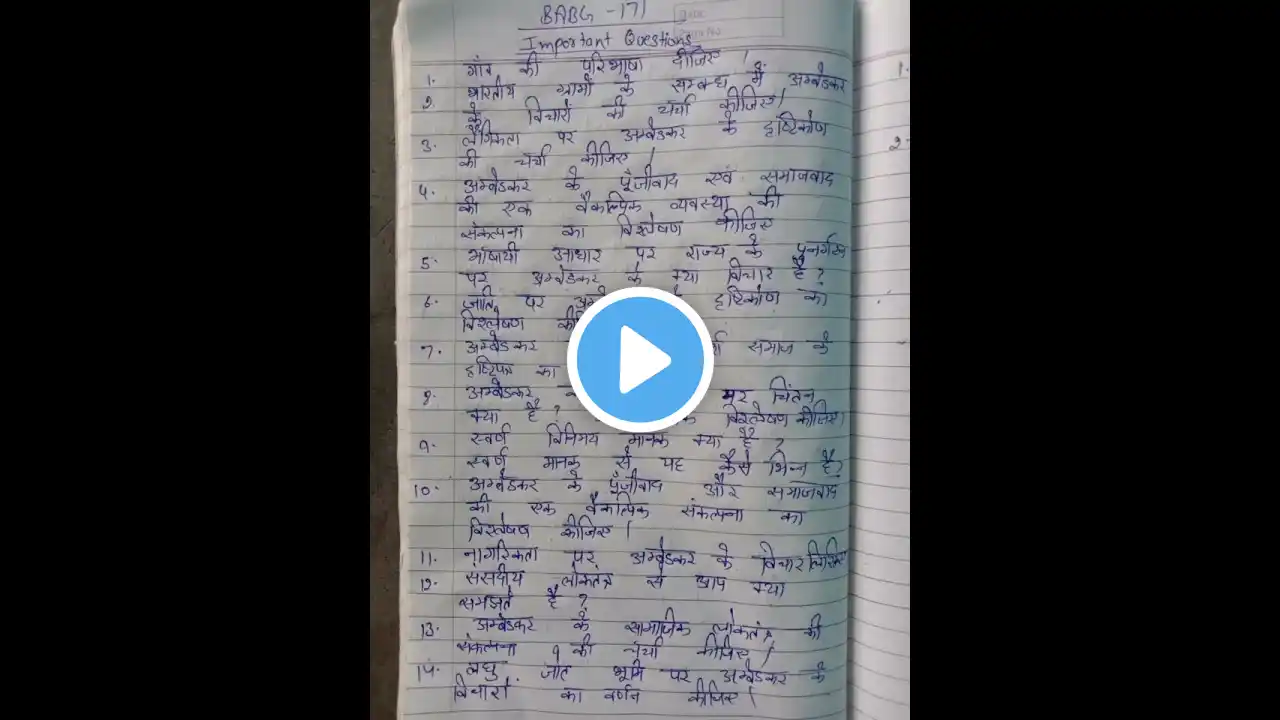 BABG - 171
Important Questions
1. गांव की परिभाषा दीजिए ।
2. भारतीय ग्रामों के सम्बन्ध में अम्बेडकर
के विचारों की चर्चा कीजिए।
3. लैंगिकता पर अम्बेडकर के दृष्टिकोण
की चर्चा कीजिए ।
4. अम्बेडकर के पूँजीवाद एवं समाजवाद
की एक वैकल्पिक व्यवस्था की
संकल्पना का विश्लेषण कीजिए
5. भाषायी आधार पर राज्य के पुनर्गठन
पर अम्बेडकर के क्या विचार है ?
6. जाति पर दृष्टिकोण का
विश्लेषण
7. अम्बेडकर समाज के
दृष्टिपत्र का
8. अम्बेडकर पर चिंतन
क्या है ? विश्लेषण कीजिए।
9. स्वर्ण विनिमय मानक क्या है ?
स्वर्ण मानक से यह कैसे भिन्न है?
10. अम्बेडकर के पूँजीवाद और समाजवाद
की एक वैकल्पिक संकल्पना का
विश्लेषण कीजिए ।
11. नागरिकता पर अम्बेडकर के विचार लिखिए
12. संसदीय लोकतंत्र से आप क्या
समझते है ?
13. अम्बेडकर के सामाजिक लोकतंत्र की
संकल्पना की चर्चा कीजिए ।
14. लघु जोत भूमि पर अम्बेडकर के
विचारों का वर्णन कीजिए ।
1.
2.